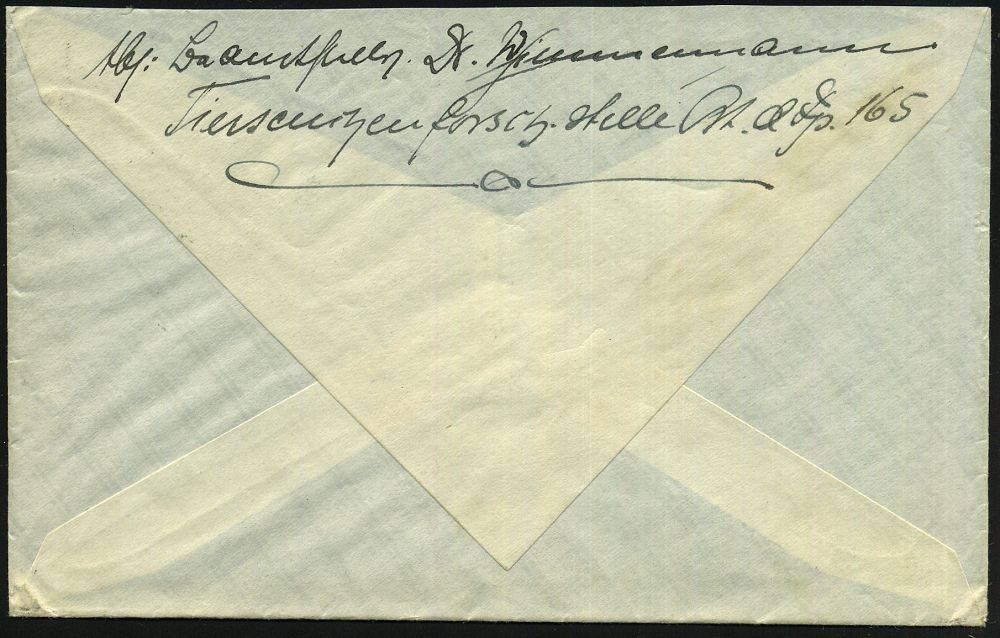 Abs: Beamtstellv. Dr. Zimmermann
Tierseuchenforsch. stelle 165